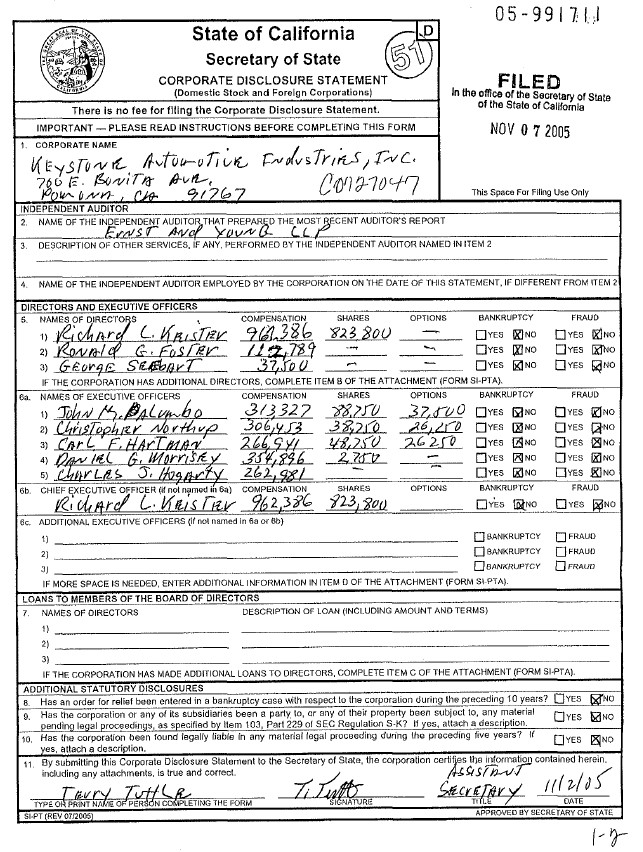 05-991711
State of California
Secretary of State
CORPORATE DISCLOSURE STATEMENT
(Domestic Stock and Foreign Corporations)
D
51
There is no fee for filing the Corporate Disclosure Statement.
IMPORTANT — PLEASE READ INSTRUCTIONS BEFORE COMPLETING THIS FORM
FILED
In the office of the Secretary of State
of the State of California
NOV 07 2005
This Space For Filing Use Only
1. CORPORATE NAME
Keystone Automotive Industries, Inc.
700 E. Bonita Ave.
Pomona, CA 91767
C0727047
INDEPENDENT AUDITOR
2. NAME OF THE INDEPENDENT AUDITOR THAT PREPARED THE MOST RECENT AUDITOR'S REPORT
Ernst and Young LLP
3. DESCRIPTION OF OTHER SERVICES, IF ANY, PERFORMED BY THE INDEPENDENT AUDITOR NAMED IN ITEM 2
4. NAME OF THE INDEPENDENT AUDITOR EMPLOYED BY THE CORPORATION ON THE DATE OF THIS STATEMENT, IF DIFFERENT FROM ITEM 2
DIRECTORS AND EXECUTIVE OFFICERS
5. NAMES OF DIRECTORS COMPENSATION SHARES OPTIONS BANKRUPTCY FRAUD
1) Richard L. Keister 962,386 823,800 — YES X NO YES X NO
2) Ronald G. Foster — — YES X NO YES X NO
3) George 37,500 — — YES X NO YES X NO
IF THE CORPORATION HAS ADDITIONAL DIRECTORS, COMPLETE ITEM B OF THE ATTACHMENT (FORM SI-PTA).
6a. NAMES OF EXECUTIVE OFFICERS COMPENSATION SHARES OPTIONS BANKRUPTCY FRAUD
1) John M. Palumbo 313,327 88,750 37,500 YES X NO YES X NO
2) Christopher Northup 306,453 38,750 26,250 YES X NO YES X NO
3) Carl F. Hartman 266,941 48,750 26250 YES X NO YES X NO
4) Daniel G. Morrisey 354,896 2,750 — YES X NO YES X NO
5) Charles J. Hogarty 262,981 — — YES X NO YES X NO
6b. CHIEF EXECUTIVE OFFICER (if not named in 6a) COMPENSATION SHARES OPTIONS BANKRUPTCY FRAUD
Richard L. Keister 962,386 823,800 YES X NO YES X NO
6c. ADDITIONAL EXECUTIVE OFFICERS (if not named in 6a or 6b)
1) BANKRUPTCY FRAUD
2) BANKRUPTCY FRAUD
3) BANKRUPTCY FRAUD
IF MORE SPACE IS NEEDED, ENTER ADDITIONAL INFORMATION IN ITEM D OF THE ATTACHMENT (FORM SI-PTA).
LOANS TO MEMBERS OF THE BOARD OF DIRECTORS
7. NAMES OF DIRECTORS DESCRIPTION OF LOAN (INCLUDING AMOUNT AND TERMS)
1)
2)
3)
IF THE CORPORATION HAS MADE ADDITIONAL LOANS TO DIRECTORS, COMPLETE ITEM C OF THE ATTACHMENT (FORM SI-PTA).
ADDITIONAL STATUTORY DISCLOSURES
8. Has an order for relief been entered in a bankruptcy case with respect to the corporation during the preceding 10 years? YES X NO
9. Has the corporation or any of its subsidiaries been a party to, or any of their property been subject to, any material
pending legal proceedings, as specified by Item 103, Part 229 of SEC Regulation S-K? If yes, attach a description. YES X NO
10. Has the corporation been found legally liable in any material legal proceeding during the preceding five years? If
yes, attach a description. YES X NO
11. By submitting this Corporate Disclosure Statement to the Secretary of State, the corporation certifies the information contained herein,
including any attachments, is true and correct.
Assistant
Terry Tuttle T. Tuttle Secretary 11/2/05
TYPE OR PRINT NAME OF PERSON COMPLETING THE FORM SIGNATURE TITLE DATE
SI-PT (REV 07/2005) APPROVED BY SECRETARY OF STATE
1-2